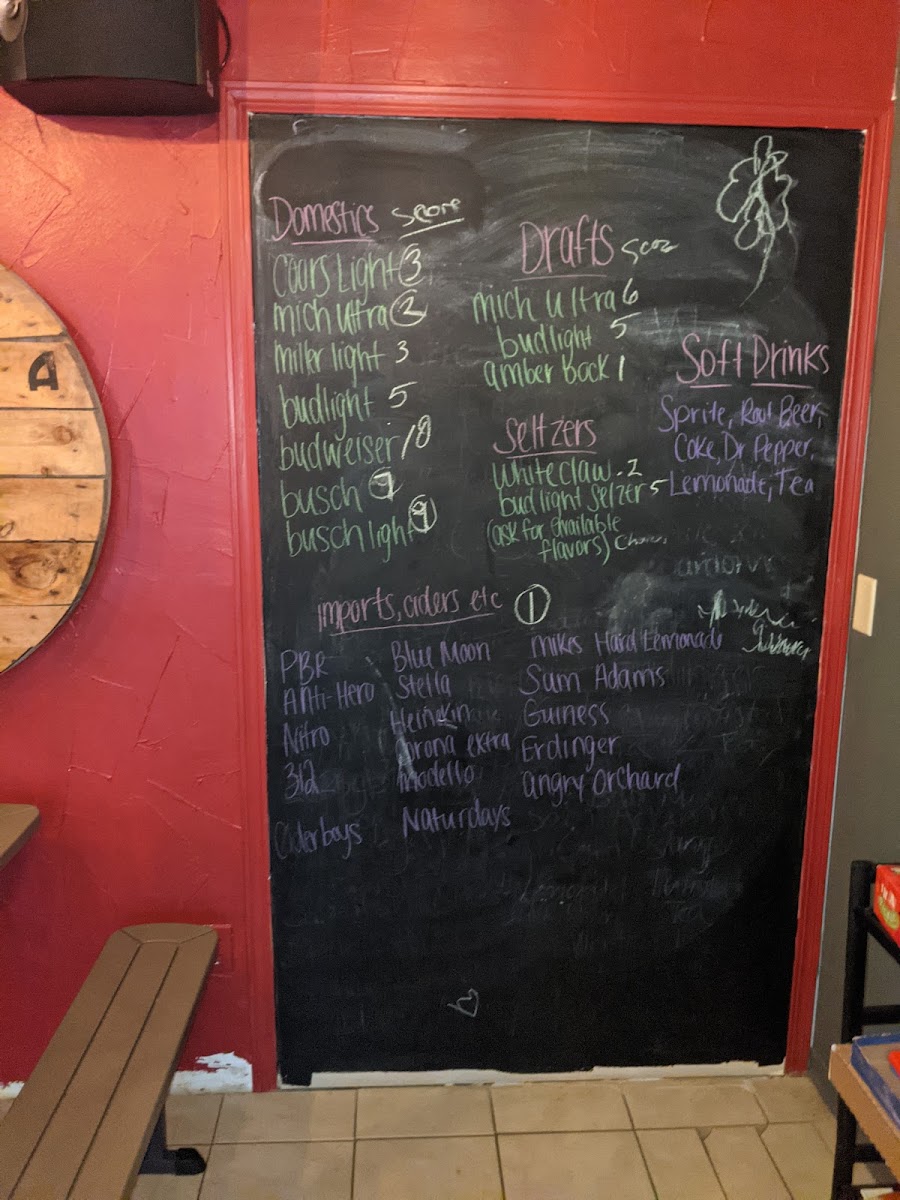 A
Domestics Score
Coors Light 3
mich ultra 2
miller light 3
budlight 5
budweiser
busch 9
busch light 9
Drafts
mich ultra 6
budlight 5
amber bock 1
Seltzers
Whiteclaw - 2
budlight Selzer 5
(ask for available
flavors)
Soft Drinks
Sprite, Root Beer,
Coke, Dr Pepper,
Lemonade, Tea
imports, ciders etc 1
PBR
Anti-Hero
Nitro
312
Ciderboys
Blue Moon
Stella
Heinekin
Corona extra
Modello
Naturdays
mikes Hard Lemonade
Sum Adams
Guiness
Erdinger
angry orchard